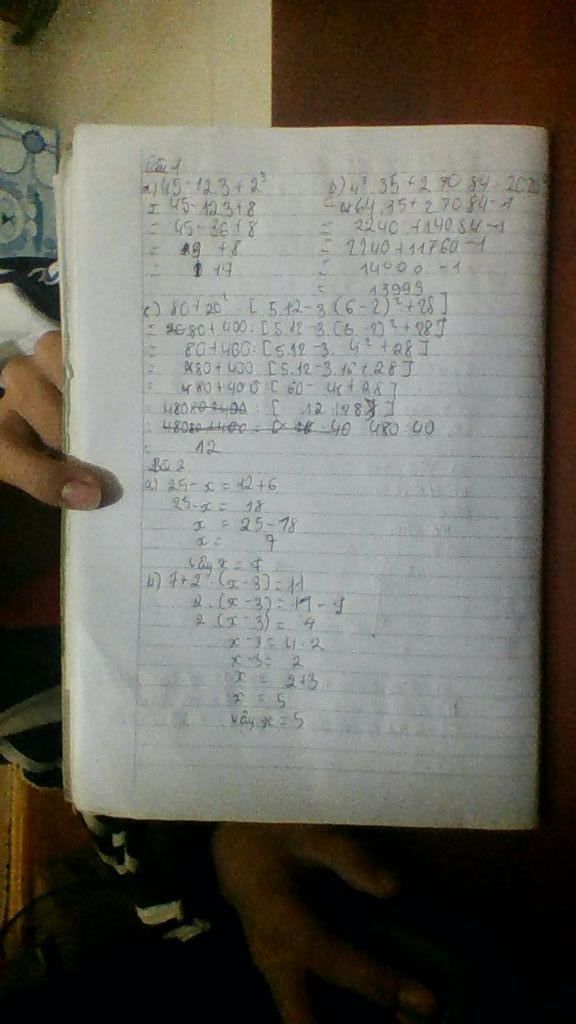 Câu 1
a) 45 - 12.3 + 2³
= 45 - 12.3 + 8
= 45 - 36 + 8
= 9 + 8
= 17
b) 4³ 35 + 2 70 84 -
= 64.35 + 2 70 84 - 1
= 2240 + 140 84 - 1
= 2240 + 11760 - 1
= 14000 - 1
= 13999
c) 80 + 20² : [ 5.12 - 3.(6 - 2)² + 28 ]
= 80 + 400 : [ 5.12 - 3.(6 - 2)² + 28 ]
= 80 + 400 : [ 5.12 - 3. 4² + 28 ]
= 480 + 400 [ 5.12 - 3.16 + 28 ]
= 480 + 400 : [ 60 - 48 + 28 ]
= 480 : [ 12 + 28 ]
= 480 : 40
= 12
Bài 2
a) 25 - x = 12 + 6
25 - x = 18
x = 25 - 18
x = 7
Vậy x = 7
b) 7 + 2 . (x - 3) = 11
2 . (x - 3) = 11 - 7
2 (x - 3) = 4
x - 3 = 4 : 2
x - 3 = 2
x = 2 + 3
x = 5
Vậy x = 5